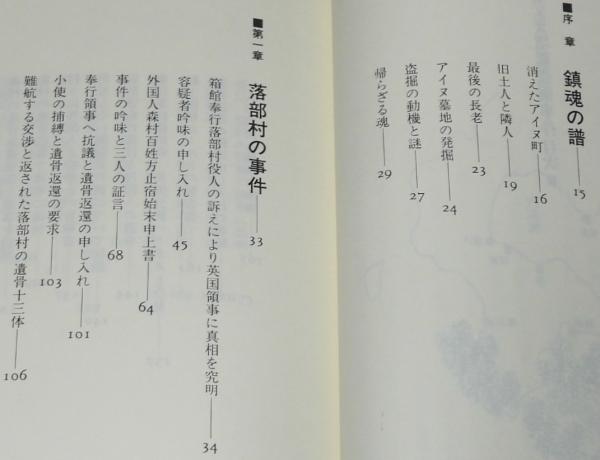 ■序 章 鎮魂の譜――15
消えたアイヌ町――16
旧土人と隣人――19
最後の長老――23
アイヌ墓地の発掘――24
盗掘の動機と謎――27
帰らざる魂――29
■第一章 落部村の事件――33
箱館奉行落部村役人の訴えにより英国領事に真相を究明――34
容疑者吟味の申し入れ――45
外国人森村百姓方止宿始末申上書――64
事件の吟味と三人の証言――68
奉行領事へ抗議と遺骨返還の申し入れ――101
小使の捕縛と遺骨返還の要求――103
難航する交渉と返された落部村の遺骨十三体――106